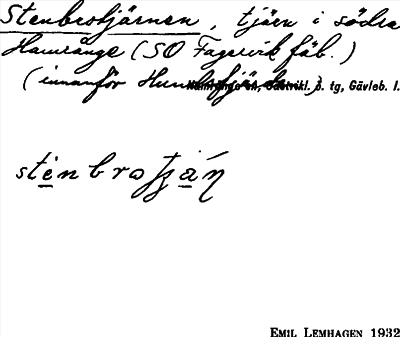 Stenbrotjärnen, tjärn i södra
Hamrånge (SO Fagervik fäb.)
(innanför
Hamrånge sn, Gästrikl. ö. tg, Gävleb. l.
stènbroʃɟä́ɳ
EMIL LEMHAGEN 1932